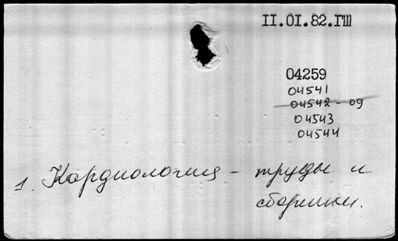 II.OI.82.ГШ
04259
04541
04542-09
04543
04544
1. Кардиология - труды и
сборники.